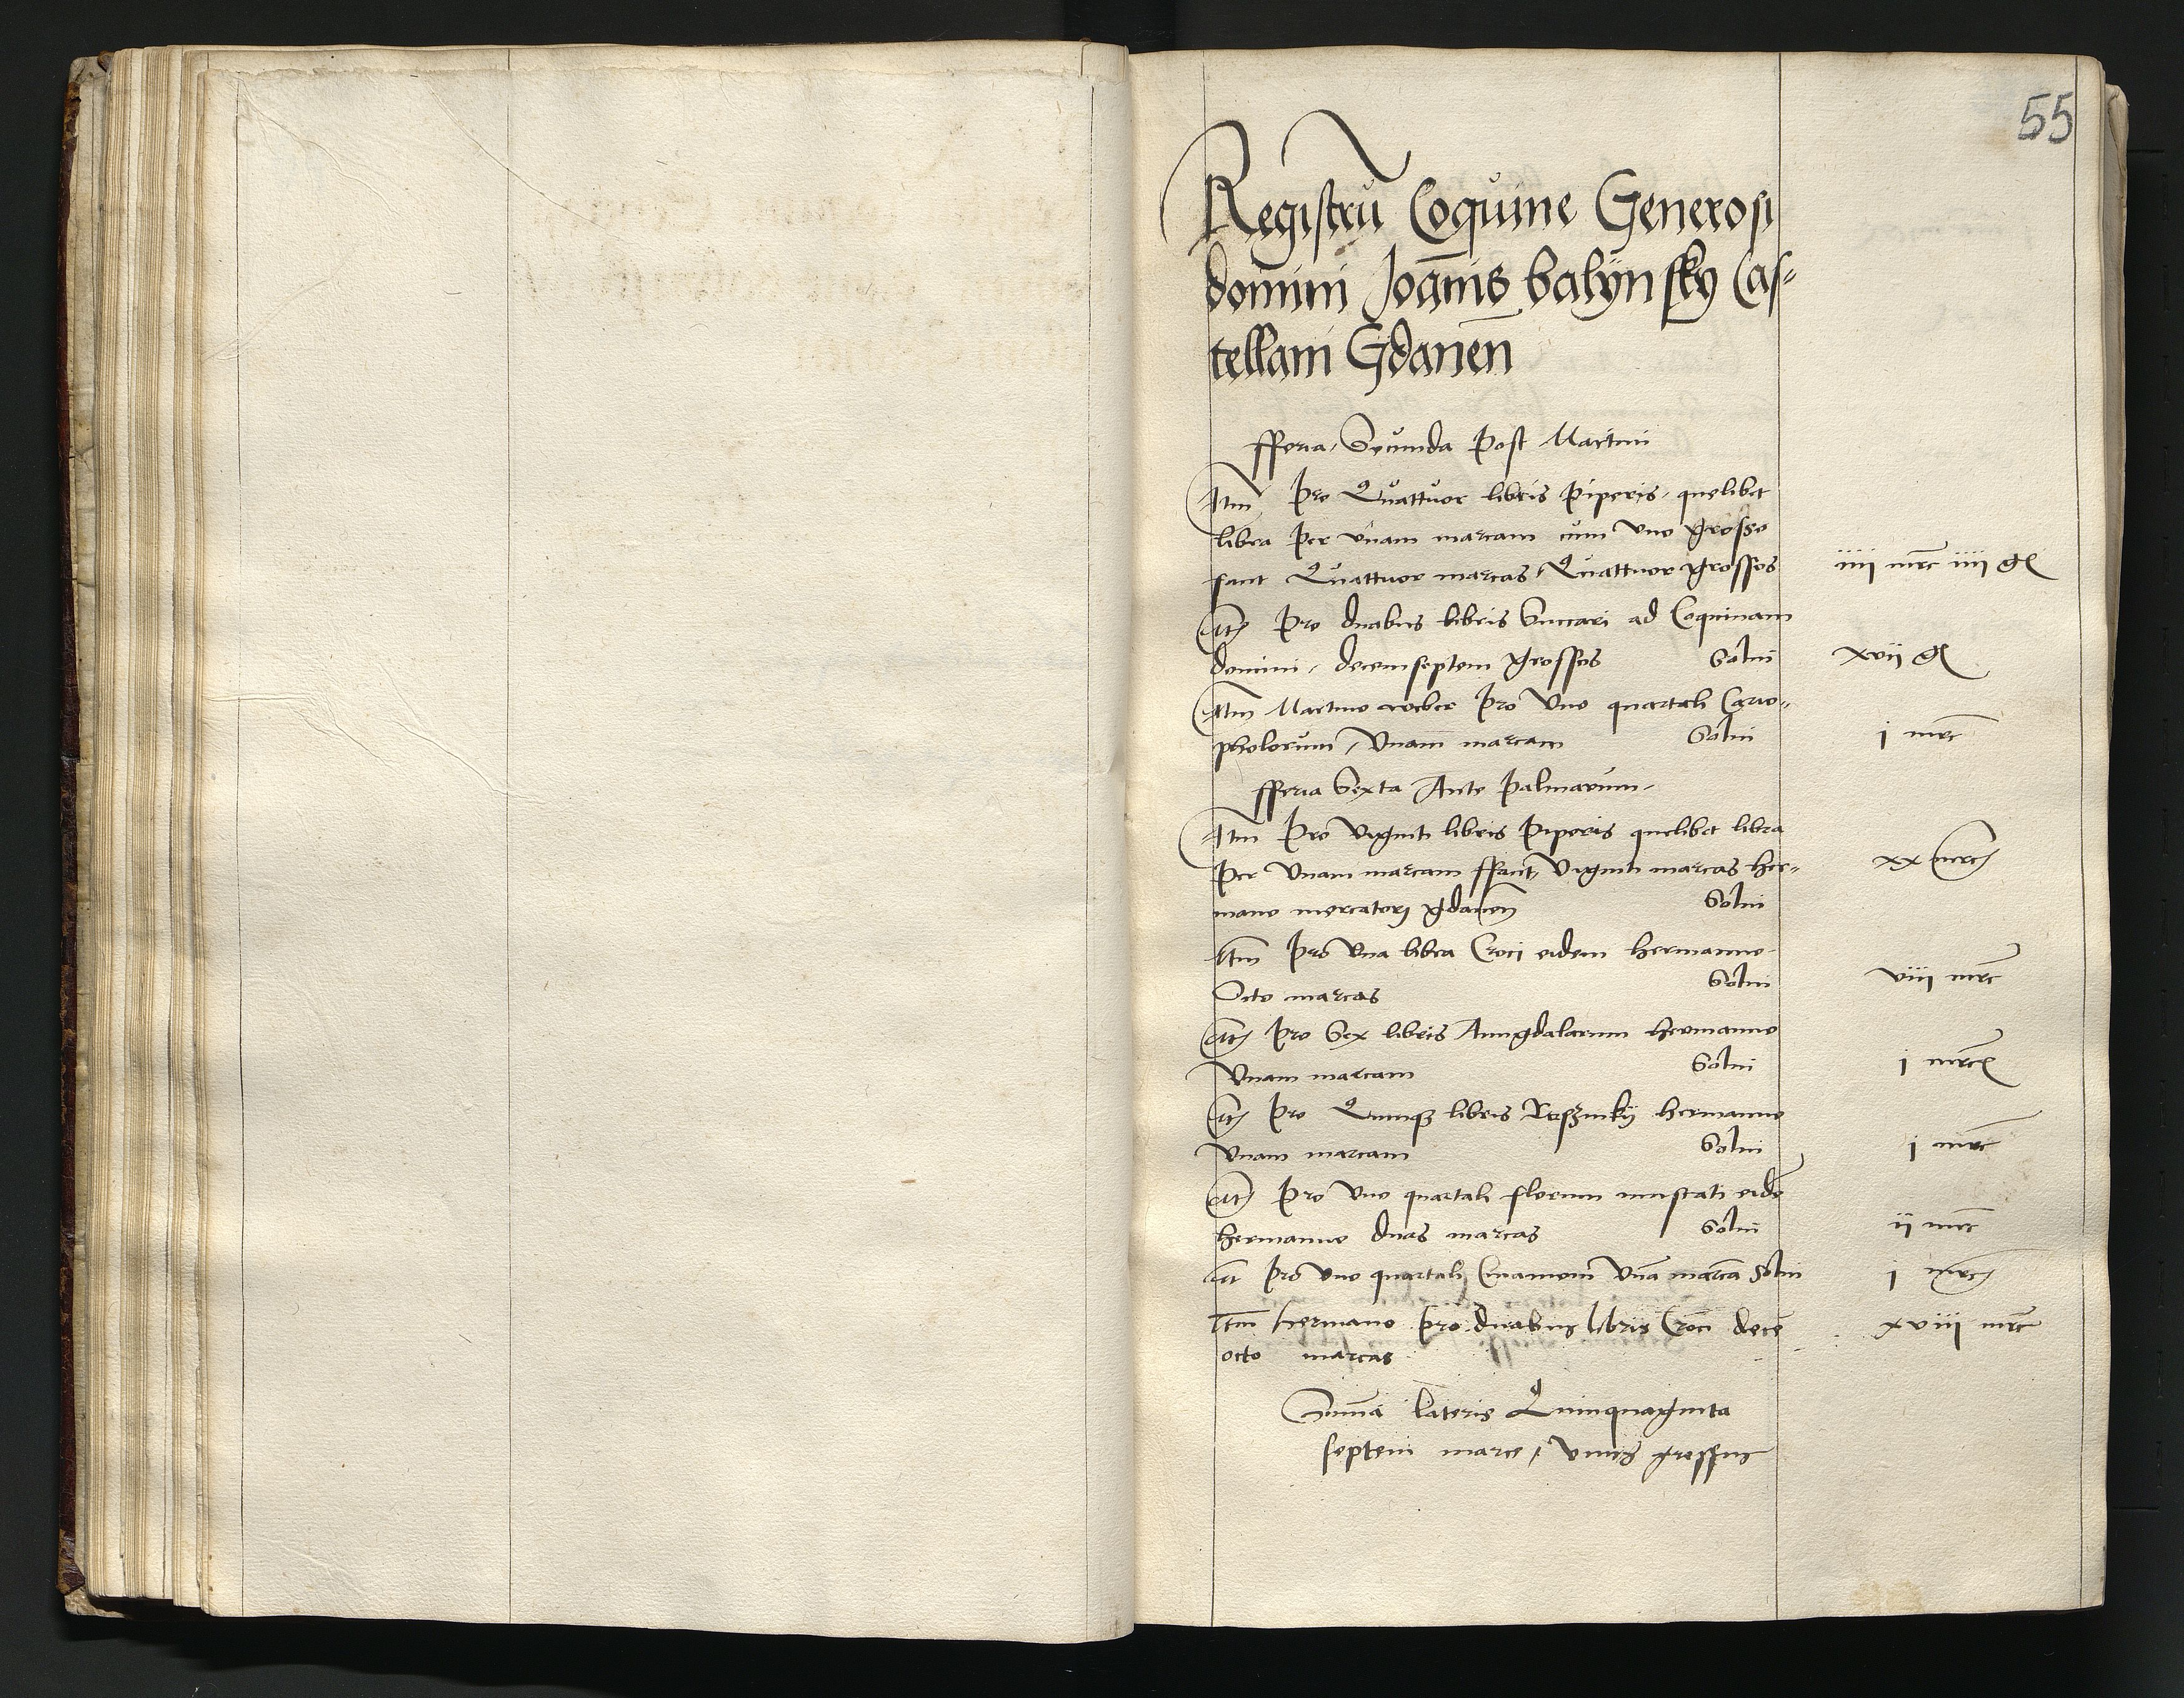 55
Registrū Coquine Generosi
domini Joānis balÿnsky Cas⸗
tellani Gdaneñ
fferia Secunda Post Martini
Itm̄ Pro Quattuor libris Piperis quelibet
libra Per vnam marcam cum vno grosso
fant Quattuor marcas Quattuor grossos iiij mrc̄ iiij gͬ
It̄ Pro duabus libris Succari ad Coquinam
domini decemseptem grossos Solui xvij gͬ
Itm̄ Martino weber Pro Vno quartali Cario⸗
pholorum Vnam marcam Solui j mrc̄
fferia Sexta Ante Palmarum
Itm̄ Pro Viginti libris Piperis quelibet libra
Per Vnam marcam ffant Viginti marcas her⸗ xx mrc̄
mano mercatorj gdaneñ Solui
Itm̄ Pro Vna libra Crocj eidem hermanno
Octo marcas Solui viij mrc̄
It̄ Pro Sex libris Amigdalarum hermanno
Vnam marcam Solui j mrc̄
It̄ Pro Quinqꝫ libris hermanno
Vnam marcam Solui j mrc̄
It̄ Pro Vno quartali florum muscati eidē
hermanno duas marcas Solui ij mrc̄
It̄ Pro vno quartalj Cinamomi Vnā marcā Solui j mrc̄
Itm̄ hermano pro duabus libris Croci decē xviij mrc̄
octo marcas
Summa lateris Quinquaginta
septem marce vnus grossus